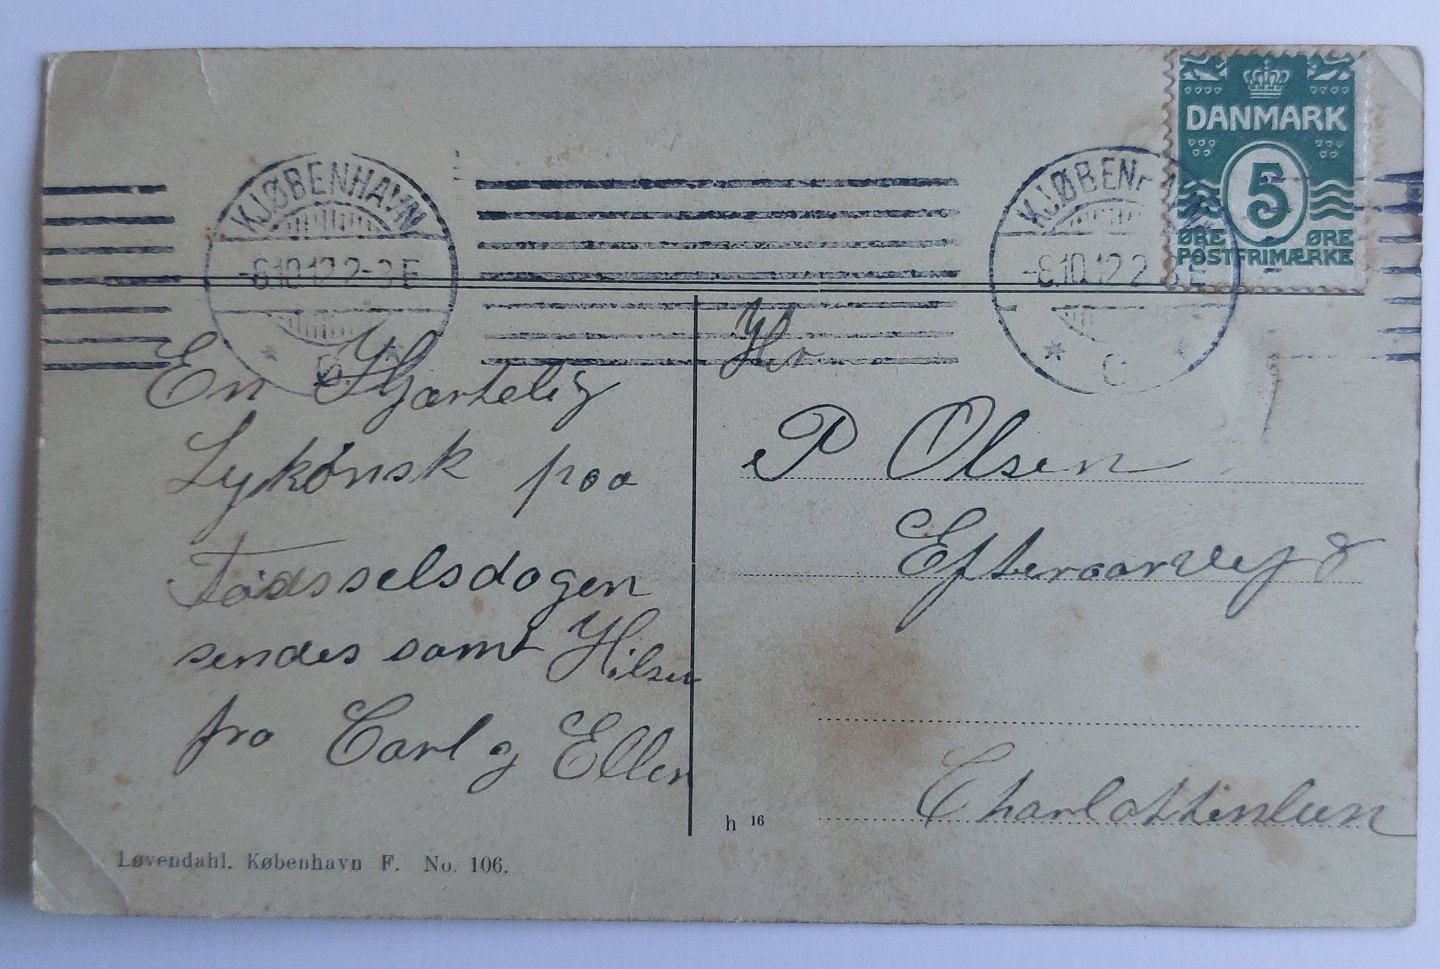 DANMARK
5
ØRE ØRE
POSTFRIMÆRKE
KJØBENHAVN
-8.10.12 2-3 E
KJØBENHAVN
-8.10.12 2
En Hjærtelig
Lykønsk paa
Fødsselsdagen
sendes samt Hilsen
fra Carl og Ellen
Hr
P Olsen
Efteraarvej 8
Charlottenlun
h 16
Løvendahl. København F. No. 106.